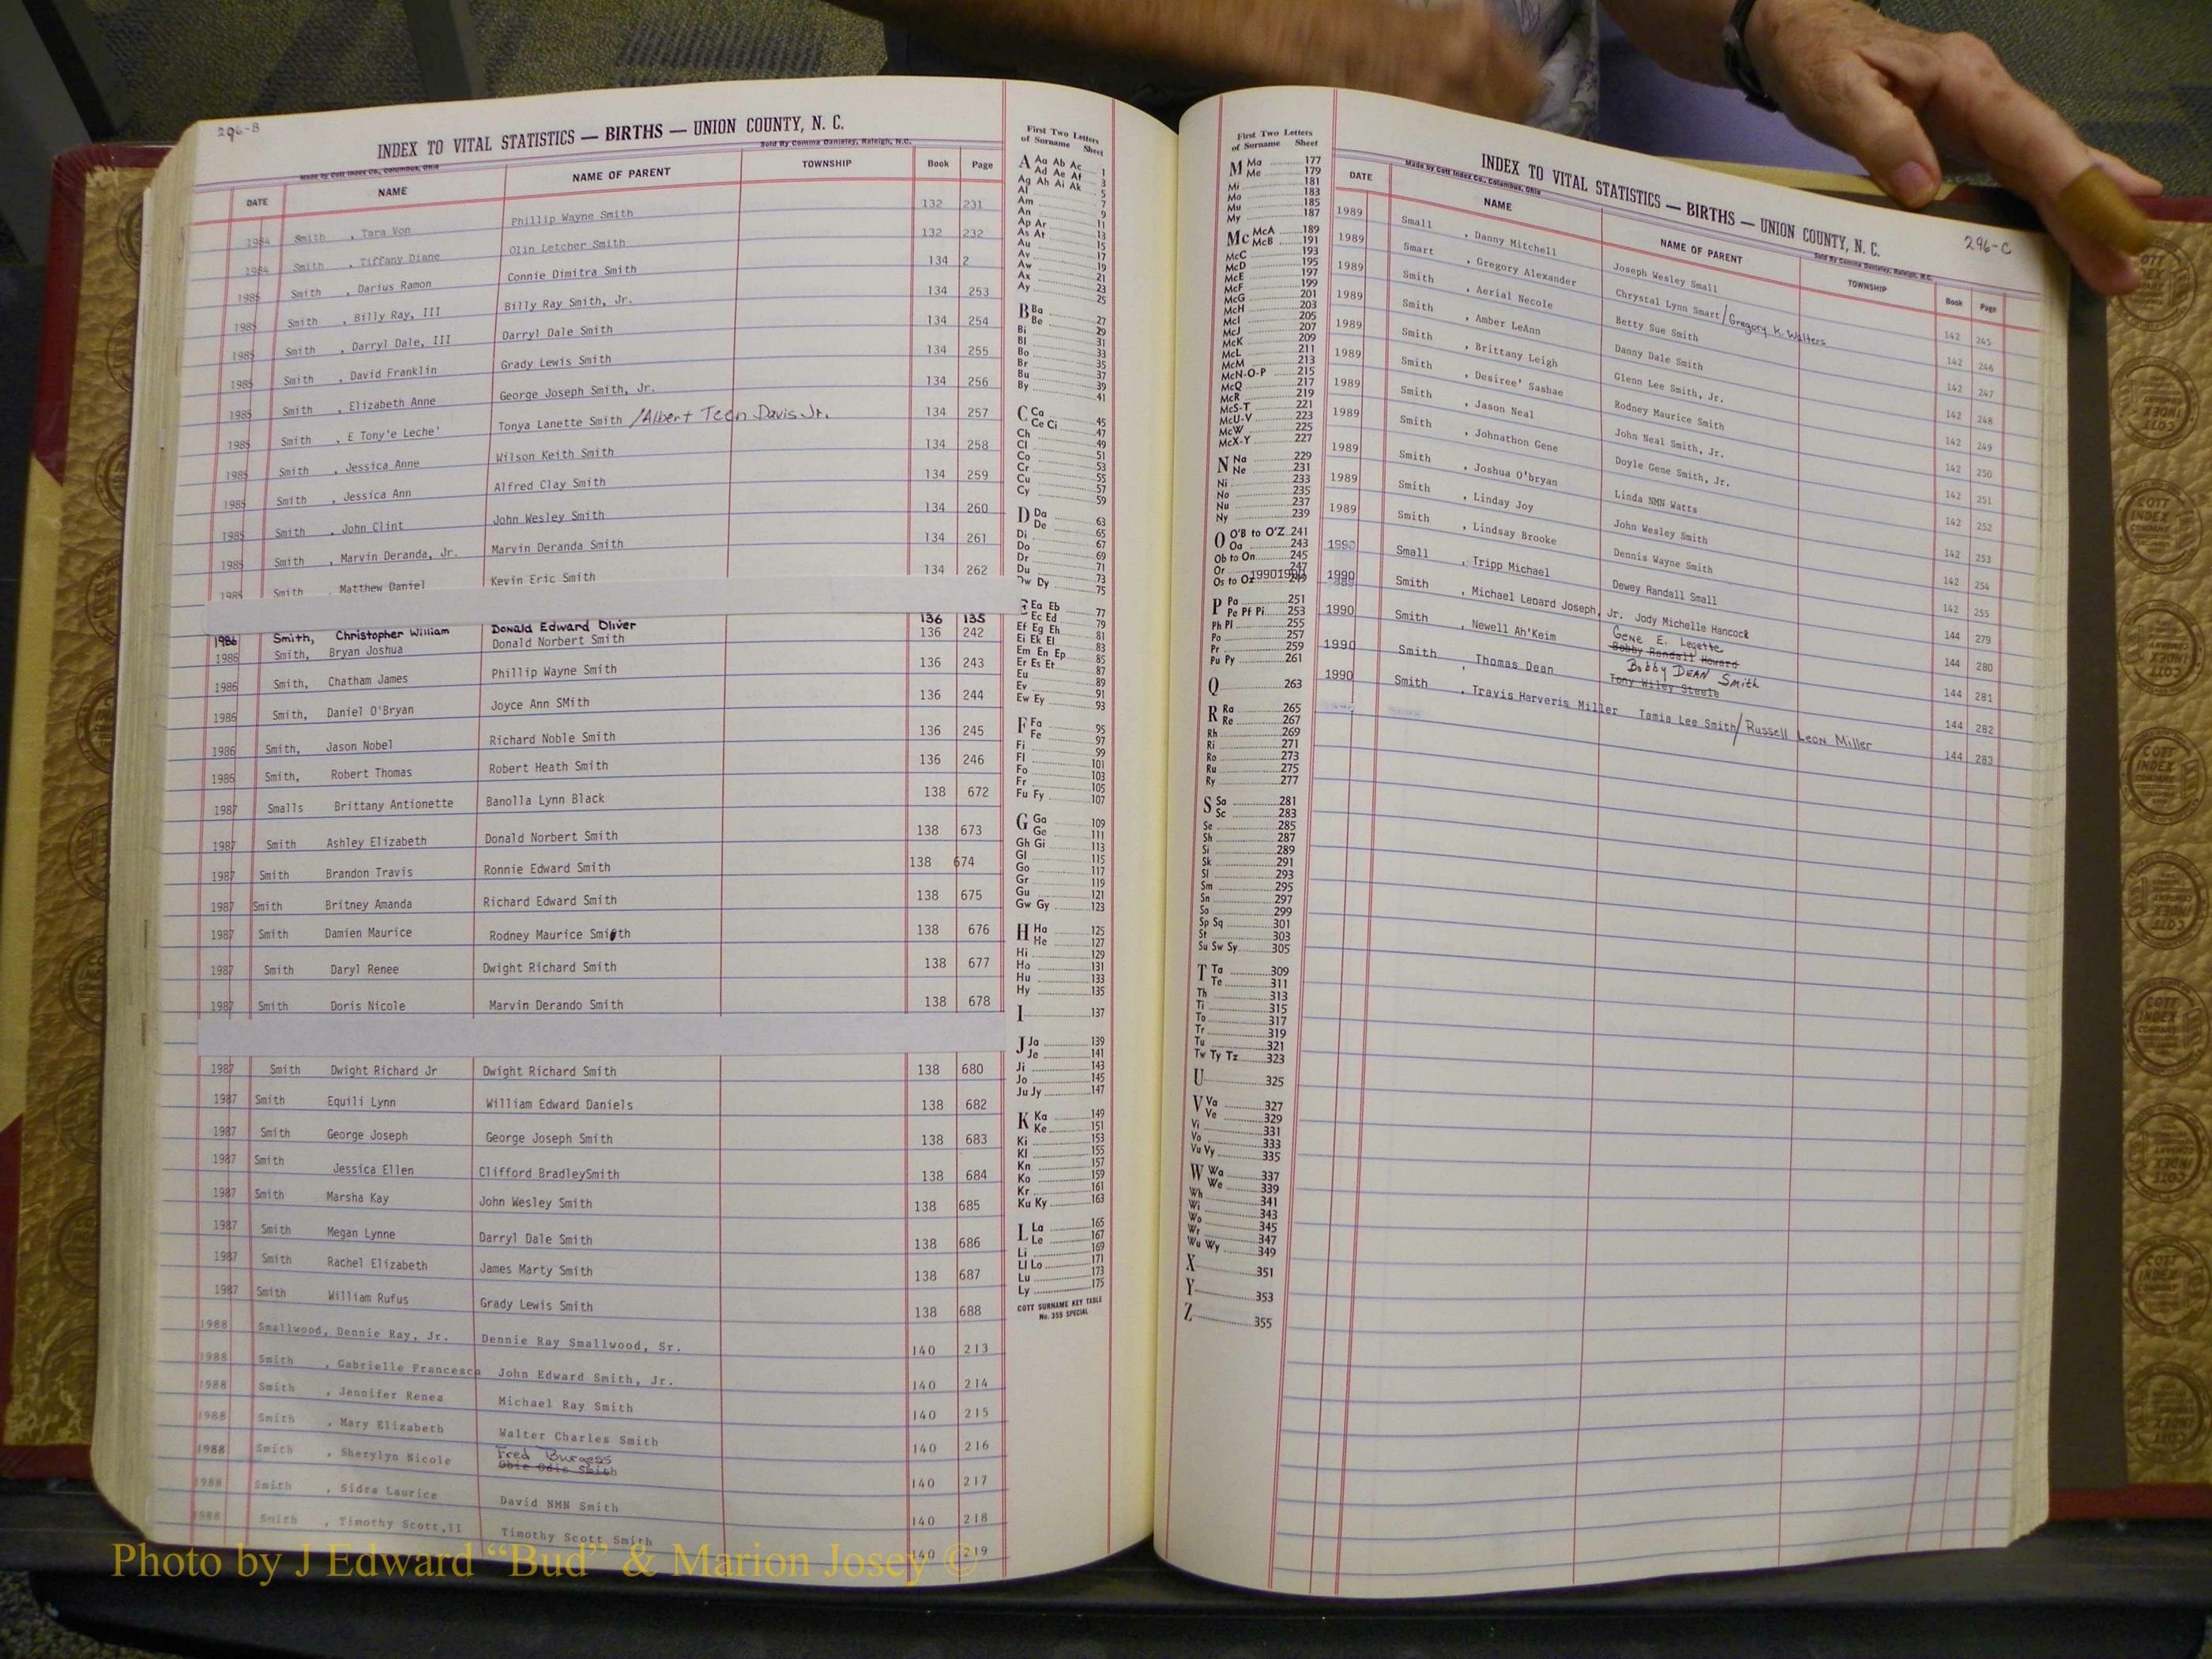 296-B
INDEX TO VITAL STATISTICS — BIRTHS — UNION COUNTY, N. C.
Made by Cott Index Co., Columbus, Ohio Sold By Comma Danieley, Raleigh, N.C.
DATE NAME NAME OF PARENT TOWNSHIP Book Page
1984 Smith , Tara Von Phillip Wayne Smith 132 231
1984 Smith , Tiffany Diane Olin Letcher Smith 132 232
1985 Smith , Darius Ramon Connie Dimitra Smith 134 2
1985 Smith , Billy Ray, III Billy Ray Smith, Jr. 134 253
1985 Smith , Darryl Dale, III Darryl Dale Smith 134 254
1985 Smith , David Franklin Grady Lewis Smith 134 255
1985 Smith , Elizabeth Anne George Joseph Smith, Jr. 134 256
1985 Smith , E Tony'e Leche' Tonya Lanette Smith /Albert Teen Davis Jr. 134 257
1985 Smith , Jessica Anne Wilson Keith Smith 134 258
1985 Smith , Jessica Ann Alfred Clay Smith 134 259
1985 Smith , John Clint John Wesley Smith 134 260
1985 Smith , Marvin Deranda, Jr. Marvin Deranda Smith 134 261
1985 Smith Matthew Daniel Kevin Eric Smith 134 262
1986 Smith, Christopher William Donald Edward Oliver 136 135
1986 Smith, Bryan Joshua Donald Norbert Smith 136 242
1986 Smith, Chatham James Phillip Wayne Smith 136 243
1986 Smith, Daniel O'Bryan Joyce Ann SMith 136 244
1986 Smith, Jason Nobel Richard Noble Smith 136 245
1986 Smith, Robert Thomas Robert Heath Smith 136 246
1987 Smalls Brittany Antionette Banolla Lynn Black 138 672
1987 Smith Ashley Elizabeth Donald Norbert Smith 138 673
1987 Smith Brandon Travis Ronnie Edward Smith 138 674
1987 Smith Britney Amanda Richard Edward Smith 138 675
1987 Smith Damien Maurice Rodney Maurice Smith 138 676
1987 Smith Daryl Renee Dwight Richard Smith 138 677
1987 Smith Doris Nicole Marvin Derando Smith 138 678
1987 Smith Dwight Richard Jr Dwight Richard Smith 138 680
1987 Smith Equili Lynn William Edward Daniels 138 682
1987 Smith George Joseph George Joseph Smith 138 683
1987 Smith Jessica Ellen Clifford BradleySmith 138 684
1987 Smith Marsha Kay John Wesley Smith 138 685
1987 Smith Megan Lynne Darryl Dale Smith 138 686
1987 Smith Rachel Elizabeth James Marty Smith 138 687
1987 Smith William Rufus Grady Lewis Smith 138 688
1988 Smallwood, Dennie Ray, Jr. Dennie Ray Smallwood, Sr. 140 213
1988 Smith , Gabrielle Francesca John Edward Smith, Jr. 140 214
1988 Smith , Jennifer Renea Michael Ray Smith 140 215
1988 Smith , Mary Elizabeth Walter Charles Smith 140 216
1988 Smith , Sherylyn Nicole Fred Burgess 140 217
Obie Odie Smith
1988 Smith , Sidra Laurice David NMN Smith 140 218
1988 Smith , Timothy Scott,II Timothy Scott Smith 140 219
First Two Letters
of Surname Sheet
A Aa Ab Ac 1
Ad Ae Af 3
Ag Ah Ai Ak 5
Al 7
Am 9
An 11
Ap Ar 13
As At 15
Au 17
Av 19
Aw 21
Ax 23
Ay 25
B Ba 27
Be 29
Bi 31
Bl 33
Bo 35
Br 37
Bu 39
By 41
C Ca 45
Ce Ci 47
Ch 49
Cl 51
Co 53
Cr 55
Cu 57
Cy 59
D Da 63
De 65
Di 67
Do 69
Dr 71
Du 73
Dw Dy 75
E Ea Eb 77
Ec Ed 79
Ef Eg Eh 81
Ei Ek El 83
Em En Ep 85
Er Es Et 87
Eu 89
Ev 91
Ew Ey 93
F Fa 95
Fe 97
Fi 99
Fl 101
Fo 103
Fr 105
Fu Fy 107
G Ga 109
Ge 111
Gh Gi 113
Gl 115
Go 117
Gr 119
Gu 121
Gw Gy 123
H Ha 125
He 127
Hi 129
Ho 131
Hu 133
Hy 135
I 137
J Ja 139
Je 141
Ji 143
Jo 145
Ju Jy 147
K Ka 149
Ke 151
Ki 153
Kl 155
Kn 157
Ko 159
Kr 161
Ku Ky 163
L La 165
Le 167
Li 169
Ll Lo 171
Lu 173
Ly 175
COTT SURNAME KEY TABLE
No. 355 SPECIAL
First Two Letters
of Surname Sheet
M Ma 177
Me 179
Mi 181
Mo 183
Mu 185
My 187
Mc McA 189
McB 191
McC 193
McD 195
McE 197
McF 199
McG 201
McH 203
McI 205
McJ 207
McK 209
McL 211
McM 213
McN-O-P 215
McQ 217
McR 219
McS-T 221
McU-V 223
McW 225
McX-Y 227
N Na 229
Ne 231
Ni 233
No 235
Nu 237
Ny 239
O O'B to O'Z 241
Oa 243
Ob to On 245
Or 247
Os to Oz 249
19901990
P Pa 251
Pe Pf Pi 253
Ph Pl 255
Po 257
Pr 259
Pu Py 261
Q 263
R Ra 265
Re 267
Rh 269
Ri 271
Ro 273
Ru 275
Ry 277
S Sa 281
Sc 283
Se 285
Sh 287
Si 289
Sk 291
Sl 293
Sm 295
Sn 297
So 299
Sp Sq 301
St 303
Su Sw Sy 305
T Ta 309
Te 311
Th 313
Ti 315
To 317
Tr 319
Tu 321
Tw Ty Tz 323
U 325
V Va 327
Ve 329
Vi 331
Vo 333
Vu Vy 335
W Wa 337
We 339
Wh 341
Wi 343
Wo 345
Wr 347
Wu Wy 349
X 351
Y 353
Z 355
INDEX TO VITAL STATISTICS — BIRTHS — UNION COUNTY, N. C. 296-C
Made by Cott Index Co., Columbus, Ohio Sold By Comma Danieley, Raleigh, N.C.
DATE NAME NAME OF PARENT TOWNSHIP Book Page
1989 Small , Danny Mitchell Joseph Wesley Small 142 245
1989 Smart , Gregory Alexander Chrystal Lynn Smart/Gregory K. Walters 142 246
1989 Smith , Aerial Necole Betty Sue Smith 142 247
1989 Smith , Amber LeAnn Danny Dale Smith 142 248
1989 Smith , Brittany Leigh Glenn Lee Smith, Jr. 142 249
1989 Smith , Desiree' Sashae Rodney Maurice Smith 142 250
1989 Smith , Jason Neal John Neal Smith, Jr. 142 251
1989 Smith , Johnathon Gene Doyle Gene Smith, Jr. 142 252
1989 Smith , Joshua O'bryan Linda NMN Watts 142 253
1989 Smith , Linday Joy John Wesley Smith 142 254
1989 Smith , Lindsay Brooke Dennis Wayne Smith 142 255
1990 Small , Tripp Michael Dewey Randall Small 144 279
1990 Smith , Michael Leoard Joseph, Jr. Jody Michelle Hancock 144 280
1990 Smith , Newell Ah'Keim Gene E. Legette 144 281
Bobby Randall Howard
1990 Smith , Thomas Dean Bobby DEAN Smith 144 282
Tony Wiley Steele
1990 Smith , Travis Harveris Miller Tamia Lee Smith/Russell Leon Miller 144 283
COTT
INDEX
COMPANY
Photo by J Edward “Bud” & Marion Josey ©